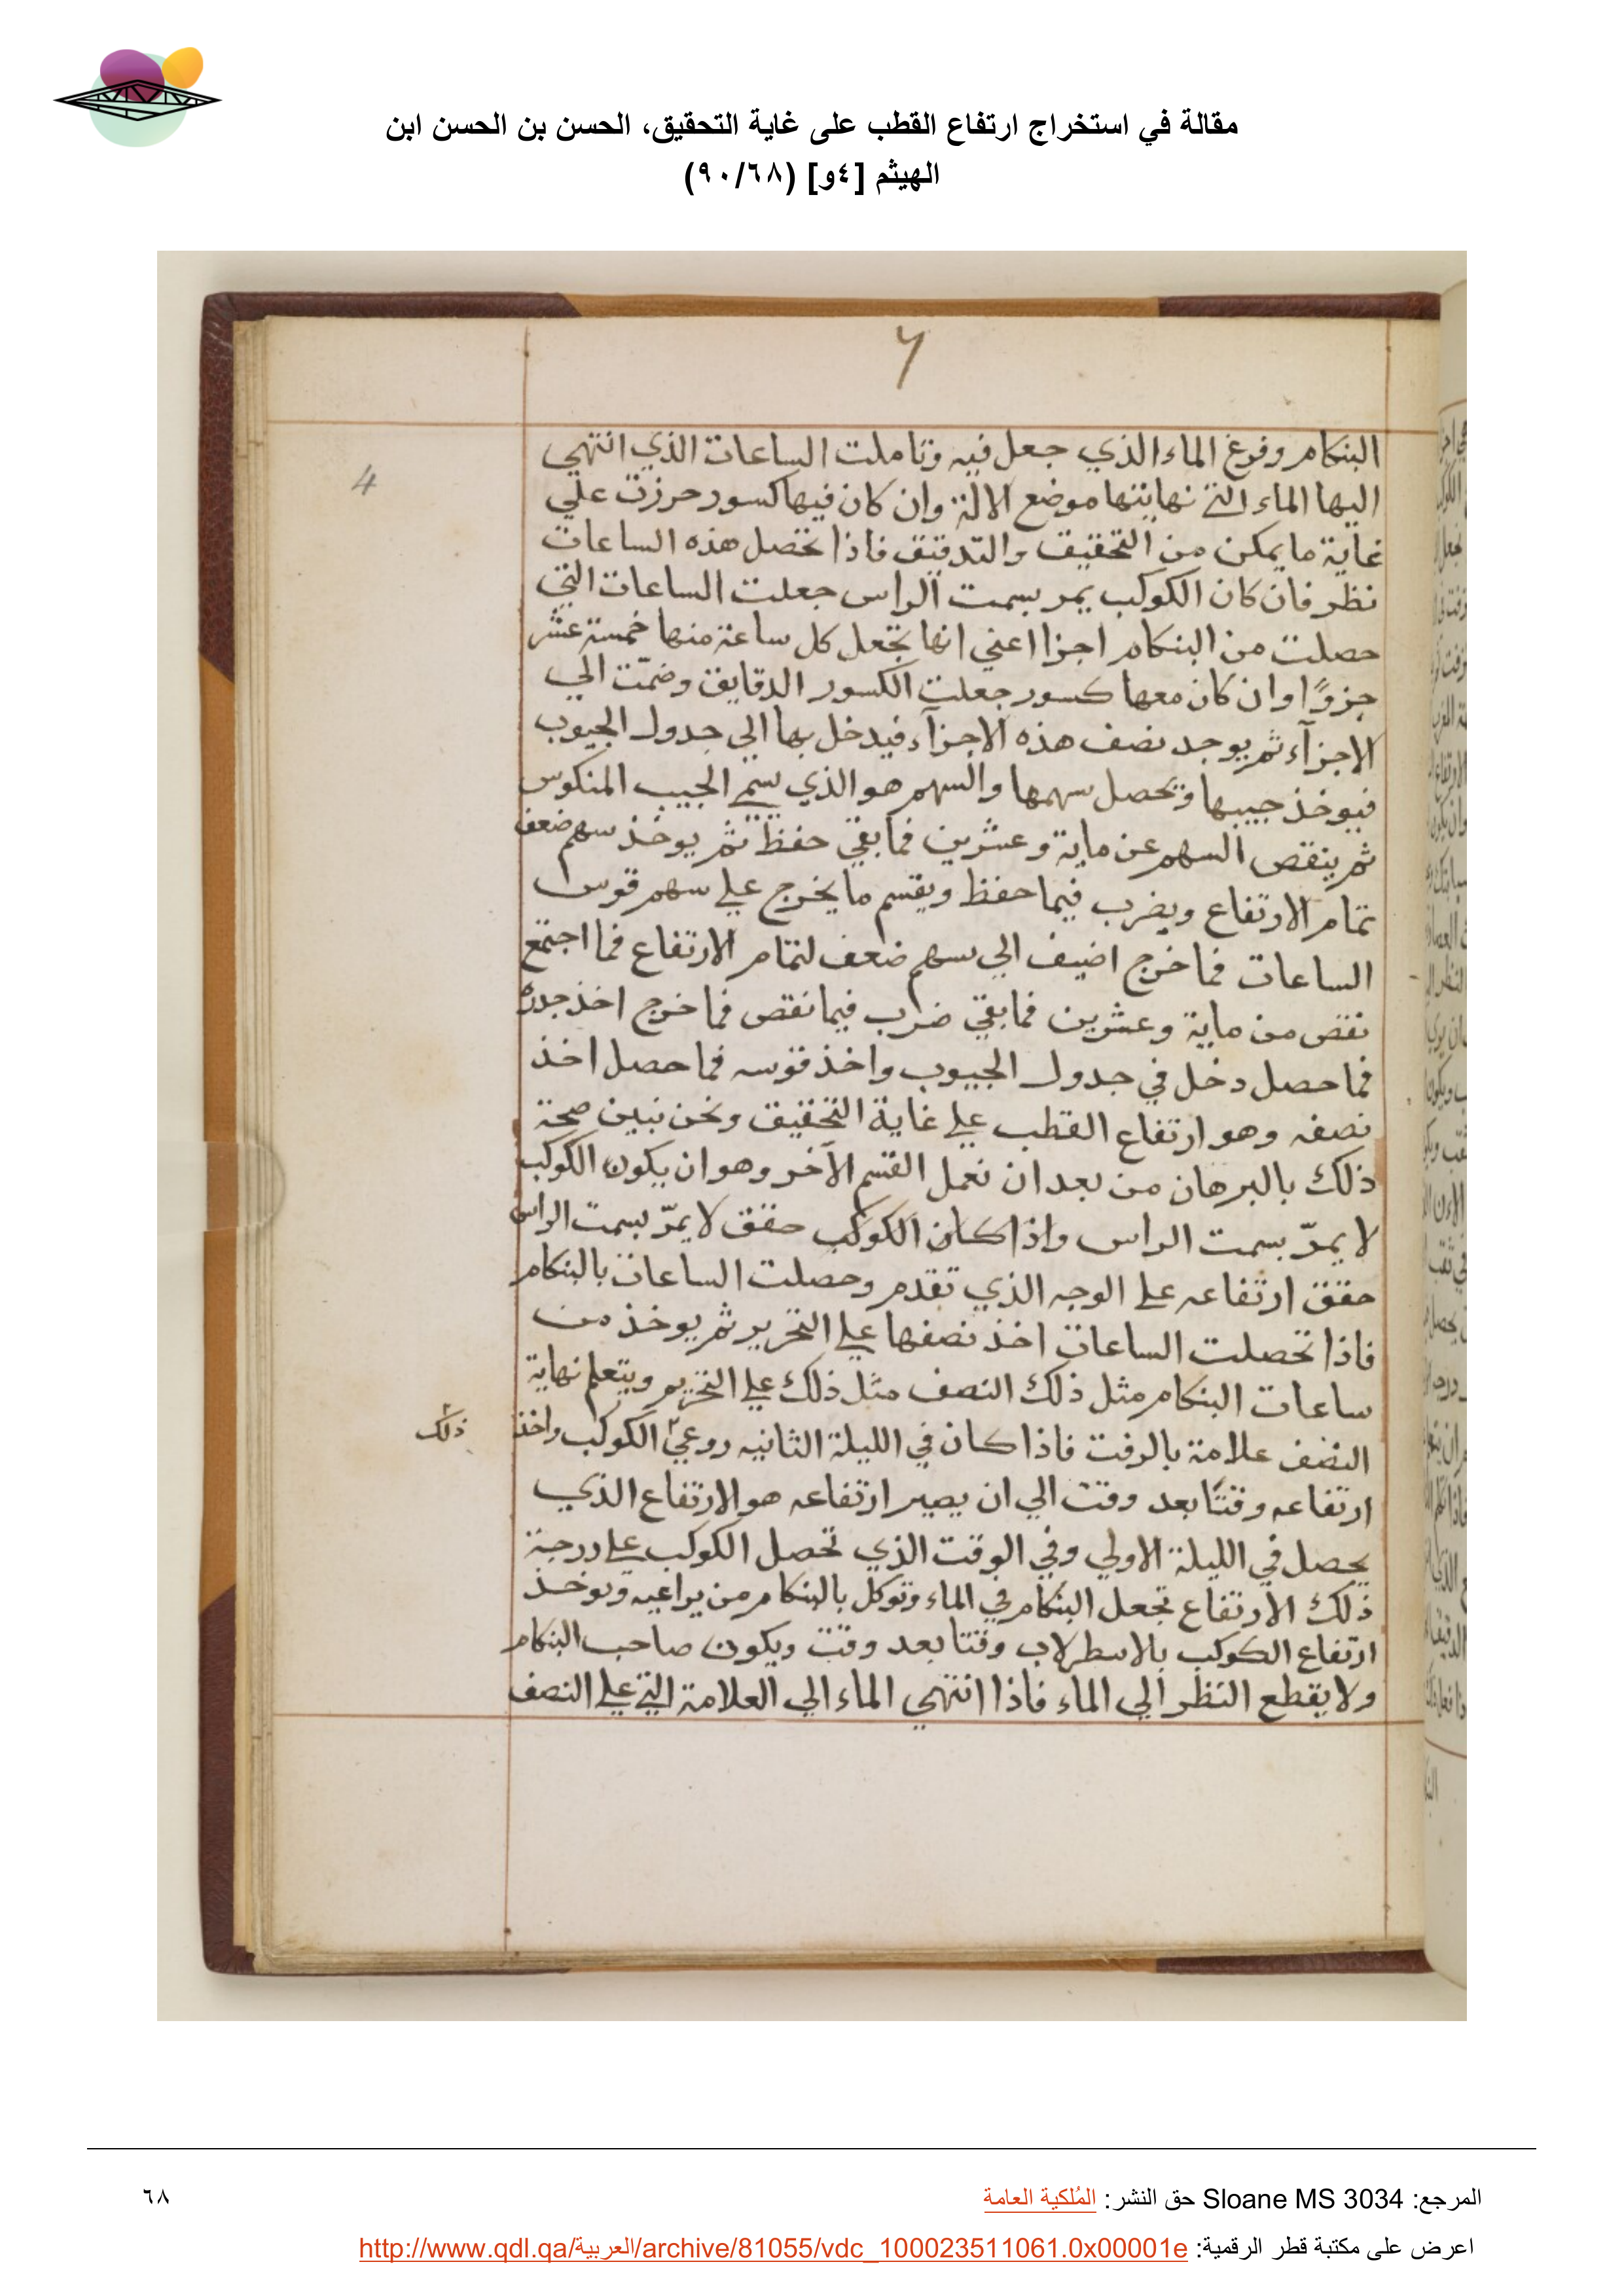 مقالة في استخراج ارتفاع القطب على غاية التحقيق، الحسن بن الحسن ابن
الهيثم [٤و] (٩٠/٦٨)
٦
4
البنكام وفرغ الماء الذي جعل فيه وتاملت الساعات الذي انتهي
اليها الماء التي نهايتها موضع الالة وان كان فيها كسور حرزت علي
غاية ما يمكن من التحقيق والتدقيق فاذا تحصل هذه الساعات
نظر فان كان الكوكب يمر بسمت الراس جعلت الساعات التي
حصلت من البنكام اجزا اعني انها تجعل كل ساعة منها خمسة عشر
جزوًا وان كان معها كسور جعلت الكسور الدقايق وضمّت الي
الاجزآء ثم يوجد نصف هذه الاجزآء فيدخل بها الي جدول الجيوب
فيوخذ جيبها وتحصل سهمها والسهم هو الذي يسمي الجيب المنكوس
ثم ينقص السهم عن ماية وعشرين فما بقي حفظ ثم يوخذ سهم ضعف
تمام الارتفاع ويضرب فيما حفظ ويقسم ما يخرج علي سهم قوس
الساعات فما خرج اضيف الي سهم ضعف لتمام الارتفاع فما اجتمع
نقص من ماية وعشرين فما بقي ضرب فيما نقص فما خرج اخذ جدره
فما حصل دخل في جدول الجيوب واخذ قوسه فما حصل اخذ
نصفه وهو ارتفاع القطب علي غاية التحقيق ونحن نبين صحة
ذلك بالبرهان من بعد ان نعمل القسم الآخر وهو ان يكون الكوكب
لا يمرّ بسمت الراس واذا كان الكوكب حقق لا يمرّ بسمت الراس
حقق ارتفاعه علي الوجه الذي تقدم وحصلت الساعات بالبنكام
فاذا تحصلت الساعات اخذ نصفها علي التحرير ثم يوخذ من
ساعات البنكام مثل ذلك النصف مثل ذلك علي التحرير ويتعلم نهاية
النصف علامة بالزفت فاذا كان في الليلة الثانيه روعي الكوكب واخذ
ذلك
ارتفاعه وقتًا بعد وقت الي ان يصير ارتفاعه هو الارتفاع الذي
يحصل في الليلة الاولي وفي الوقت الذي تحصل الكوكب علي درجة
ذلك الارتفاع تجعل البنكام في الماء وتوكل بالبنكام من يراعيه ويوخذ
ارتفاع الكوكب بالاسطرلاب وقتا بعد وقت ويكون صاحب البنكام
ولا يقطع النظر الي الماء فاذا انتهي الماء الي العلامة التي علي النصف
المرجع: Sloane MS 3034 حق النشر: المُلكية العامة
٦٨
اعرض على مكتبة قطر الرقمية: http://www.qdl.qa/العربية/archive/81055/vdc_100023511061.0x00001e